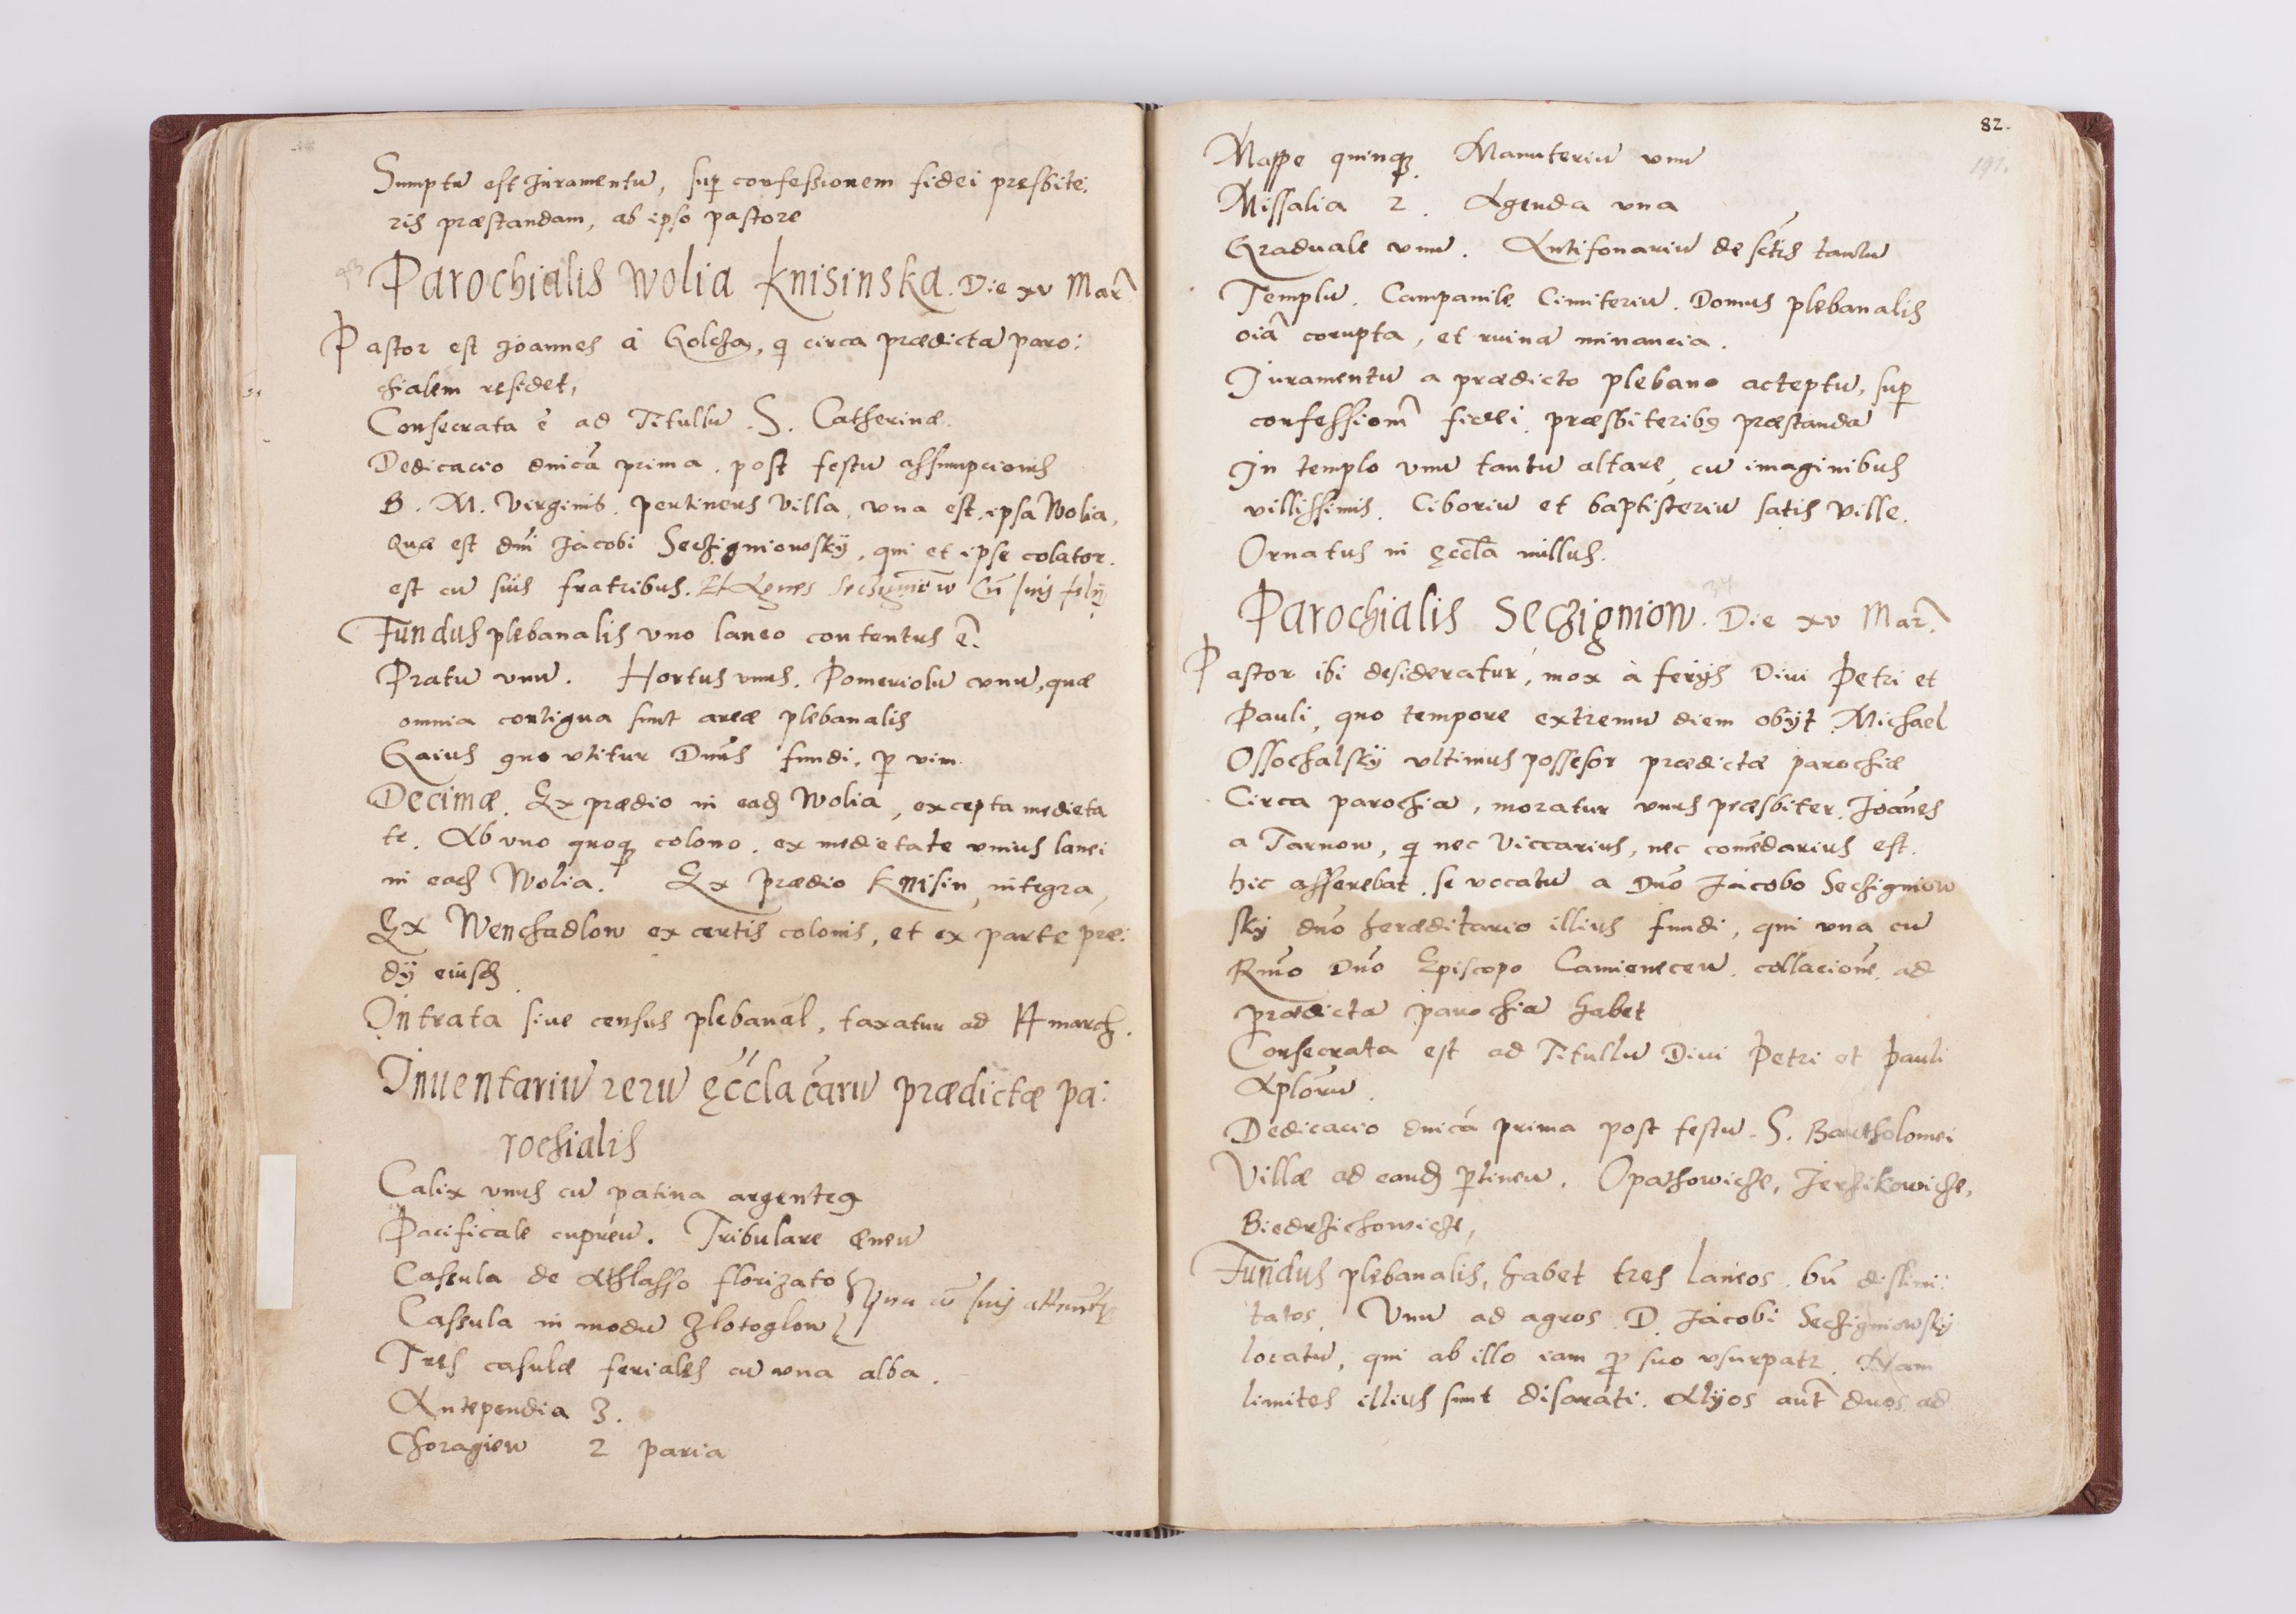 Sumptū est Juramentū, sup confessionem fidei presbite:
ris præstandam, ab ipso pastore
Parochialis Wolia Knisinska. Die xv Mar̃
Pastor est Joannes à Golcza, q circa prædictā paro:
chialem residet,
Consecrata ē ad Titullū S. Catherinæ.
Dedicacio dnicã prima post festū assumpcionis
B. M. Virginis. pertinens Villa, vna est ipsa Wolia,
Quæ est dñi Jacobi Seczigniowskÿ, qui et ipse colator.
est cū suis fratribus. Et Agnes Secigniow Cū suis filÿs
Fundus plebanalis vno laneo contentus ē.
Pratū vnū. Hortus vnus. Pomeriolū vnū, quæ
omnia contigua sunt areæ plebanalis
Gaius quo vtitur Dnũs fundi, p vim.
Decimæ. Ex prædio in eadȝ Wolia, excepta medieta
te. Ab vno quoqȝ colono, ex medietate vnius lanei
in eadȝ Wolia. Ex prædio Knisin, integra,
Ex Wenchadlow ex certis colonis, et ex parte præ:
dÿ eiusdȝ
Intrata siue census plebanal, taxatur ad march.
Inuentariū rerū ęcclãcarū prædictæ pa:
rochialis
Calix vnus cū patina argenteg
Pacificale cupreū. Tribulare æneū
Cassula de Athlasso florizato
Cassula in modū Zlotoglow } Vna cū suis
Tres casulæ feriales cū vna alba.
Antependia 3.
Choragiew 2 paria
82.
191.
Mappe quinqȝ. Manuteriū vnū
Missalia 2. Agenda vna
Graduale vnū. Antifonariū de sctis tantū
Templū. Campanile Cimiteriū. Domus plebanalis
oiã corupta, et ruinā minancia.
Juramentū a prædicto plebano acceptū, sup
confessionē̃ fidei præsbiteribȝ præstandā
In templo vnū tantū altare, cū imaginibus
villissimis. Ciboriū et baptisteriū satis ville.
Ornatus in ęccla nullus.
Parochialis Seczigniow. Die xv Mar̃.
Pastor ibi desideratur, mox à ferÿs Diui Petri et
Pauli, quo tempore extremū diem obÿt Michael
Ossochalskÿ vltimus possesor prædictæ parochiæ
Circa parochiā, moratur vnus præsbiter Joãnes
a Tarnow, q nec Viccarius, nec comẽdarius est.
hic asserebat se vocatū a Dno Jacobo Seczigniow
sky dno hæreditario illius fundi, qui vna cū
Rmo Dno Episcopo Camieneceñ. collacionē ad
prædictā parochiā habet
Consecrata est ad Titullū Diui Petri et Pauli
Aplorū.
Dedicacio dnicã prima post festū S. Bartholomei
Villæ ad eandȝ ptineñ. Opathowicze, Jerzikowicze,
Biedrzichowicze,
Fundus plebanalis, habet tres laneos bñ dislimi:
tatos. Vnū ad agros D. Jacobi Seczigniowskÿ
locatū, qui ab illo iam p suo vsurpatr. Nam
limites illius sunt disarati. Alÿos aut̃ duos ad